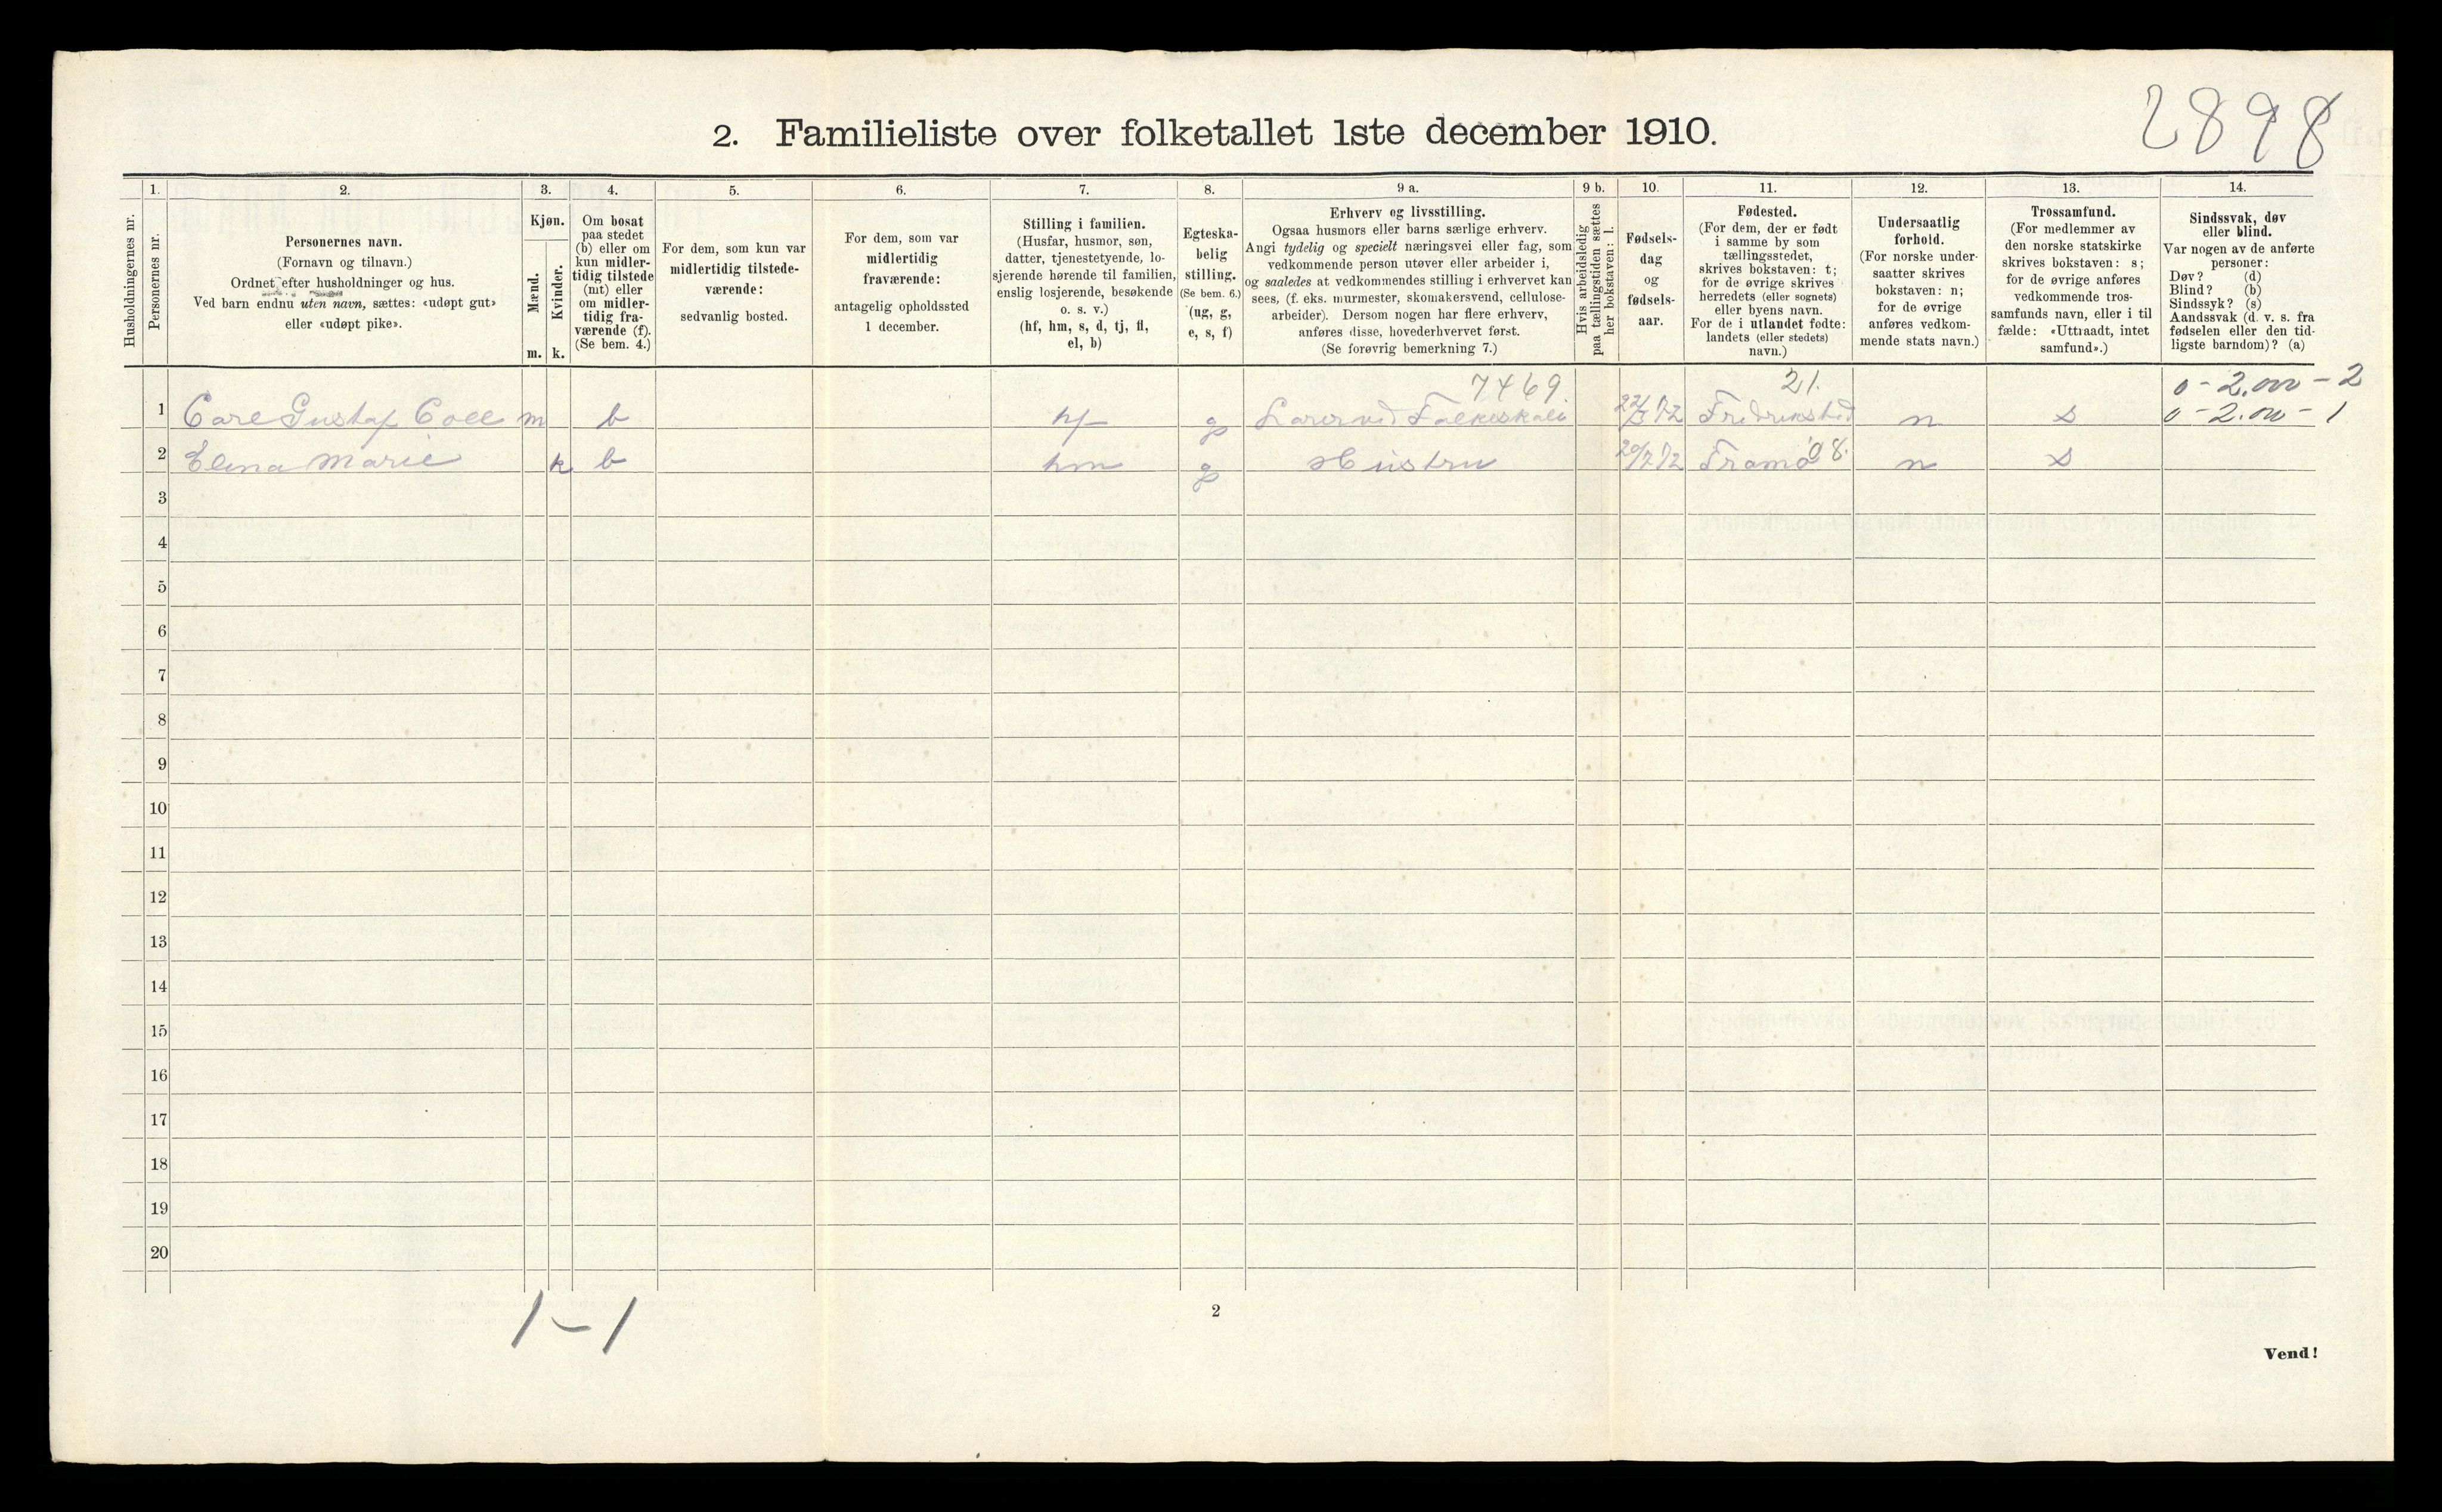 2898
2. Familieliste over folketallet 1ste december 1910.
Husholdningernes nr.
1.
Personernes nr.
2.
Personernes navn.
(Fornavn og tilnavn.)
Ordnet efter husholdninger og hus.
Ved barn endnu uten navn, sættes: «udøpt gut»
eller «udøpt pike».
3.
Kjøn.
Mænd.
Kvinder.
m. k.
4.
Om bosat
paa stedet
(b) eller om
kun midler-
tidig tilstede
(mt) eller
om midler-
tidig fra-
værende (f).
(Se bem. 4.)
5.
For dem, som kun var
midlertidig tilstede-
værende:
sedvanlig bosted.
6.
For dem, som var
midlertidig
fraværende:
antagelig opholdssted
1 december.
7.
Stilling i familien.
(Husfar, husmor, søn,
datter, tjenestetyende, lo-
sjerende hørende til familien,
enslig losjerende, besøkende
o. s. v.)
(hf, hm, s, d, tj, fl,
el, b)
8.
Egteska-
belig
stilling.
(Se bem. 6.)
(ug, g,
e, s, f)
9 a.
Erhverv og livsstilling.
Ogsaa husmors eller barns særlige erhverv.
Angi tydelig og specielt næringsvei eller fag, som
vedkommende person utøver eller arbeider i,
og saaledes at vedkommendes stilling i erhvervet kan
sees, (f. eks. murmester, skomakersvend, cellulose-
arbeider). Dersom nogen har flere erhverv,
anføres disse, hovederhvervet først.
(Se forøvrig bemerkning 7.)
9 b.
Hvis arbeidsledig
paa tællingstiden sættes
her bokstaven: l.
10.
Fødsels-
dag
og
fødsels-
aar.
11.
Fødested.
(For dem, der er født
i samme by som
tællingsstedet,
skrives bokstaven: t;
for de øvrige skrives
herredets (eller sognets)
eller byens navn.
For de i utlandet fødte:
landets (eller stedets)
navn.)
12.
Undersaatlig
forhold.
(For norske under-
saatter skrives
bokstaven: n;
for de øvrige
anføres vedkom-
mende stats navn.)
13.
Trossamfund.
(For medlemmer av
den norske statskirke
skrives bokstaven: s;
for de øvrige anføres
vedkommende tros-
samfunds navn, eller i til
fælde: «Uttraadt, intet
samfund».)
14.
Sindssvak, døv
eller blind.
Var nogen av de anførte
personer:
Døv? (d)
Blind? (b)
Sindssyk? (s)
Aandssvak (d. v. s. fra
fødselen eller den tid-
ligste barndom)? (a)
7469. 21. 0-2.00-2
1 Carl Gustaf Coll m b hf g Lærer ved Folkeskolen 22/3 72 Fredrikstad n s 0-2.00-1
2 Elena Marie k b hm g Hustru 20/7 72 Tromø 08. n s
3
4
5
6
7
8
9
10
11
12
13
14
15
16
17
18
19
20
1-1
2
Vend!